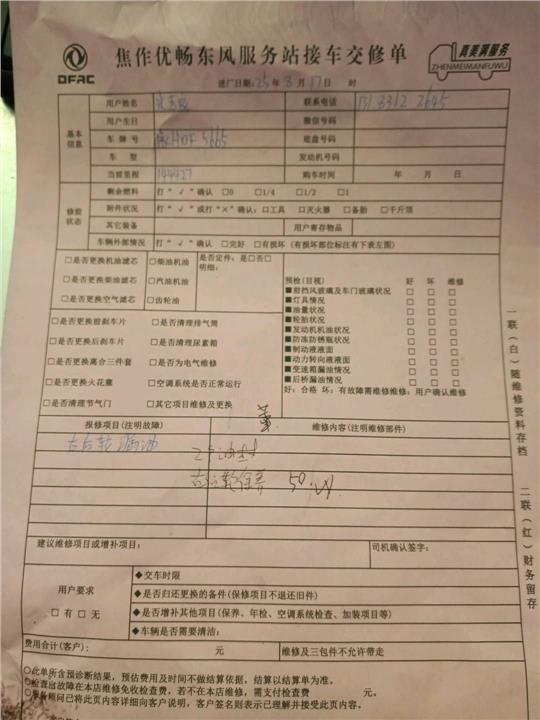 DFAC
焦作优畅东风服务站接车交修单
真美满服务
ZHENMEIMANFUWU
进厂日期:25年8月17日 时
基本信息
用户姓名
联系电话 131 3312 2645
用户生日
微信号码
车牌号 豫H0F5665
底盘号
车型
发动机号码
当前里程 144427
购车时间 年 月 日
修前状态
剩余燃料 打“√”确认 □0 □1/4 □1/2 □1
附件状况 打“√”或打“×”确认:□工具 □灭火器 □备胎 □千斤顶
其它装备
用户寄存物品
车辆外部情况 打“√”确认 □完好 □有损坏(有损坏部位标注有下表左图)
□是否更换机油滤芯 □柴油机油
□是否更换柴油滤芯 □汽油机油
□是否更换空气滤芯 □齿轮油
是否定件:是□否□
明细:
□是否更换前刹车片 □是否清理排气筒
□是否更换后刹车片 □是否清理尿素箱
□是否更换离合三件套 □是否为电气维修
□是否更换火花塞 □空调系统是否正常运行
□是否清理节气门 □其它项目维修及更换
预检(目视) 好 坏 维修
■前挡风玻璃及车门玻璃状况 □ □ □
■灯具情况 □ □ □
■油量状况 □ □ □
■轮胎状况 □ □ □
■发动机机油状况 □ □ □
■防冻防锈瓶状况 □ □ □
■制动液液面 □ □ □
■动力转向液液面 □ □ □
■变速箱漏油情况 □ □ □
■后桥漏油情况 □ □ □
好:合格 坏:有故障需维修维修:用户确认维修
报修项目(注明故障)
维修内容(注明维修部件)
右后轮漏油
右后轮保养 50
建议维修项目或增补项目:
司机确认签字:
用户要求
□有□无
◆交车时限
◆是否归还更换的备件(保修项目不退还旧件)
◆是否增补其他项目(保养、年检、空调系统检查、加装项目等)
◆车辆是否需要清洁:
费用合计(客户): 元
维修及三包件不允许带走
○此单所含预诊断结果,预估费用及时间不做结算依据,结算以结算单为准。
○检查出故障在本店维修免收检查费,若不在本店维修,需支付检查费 元。
○服务顾问已将此页内容详细向客户说明,客户签名则表示已理解并接受此页内容。
一联(白)随维修资料存档
二联(红)财务留存